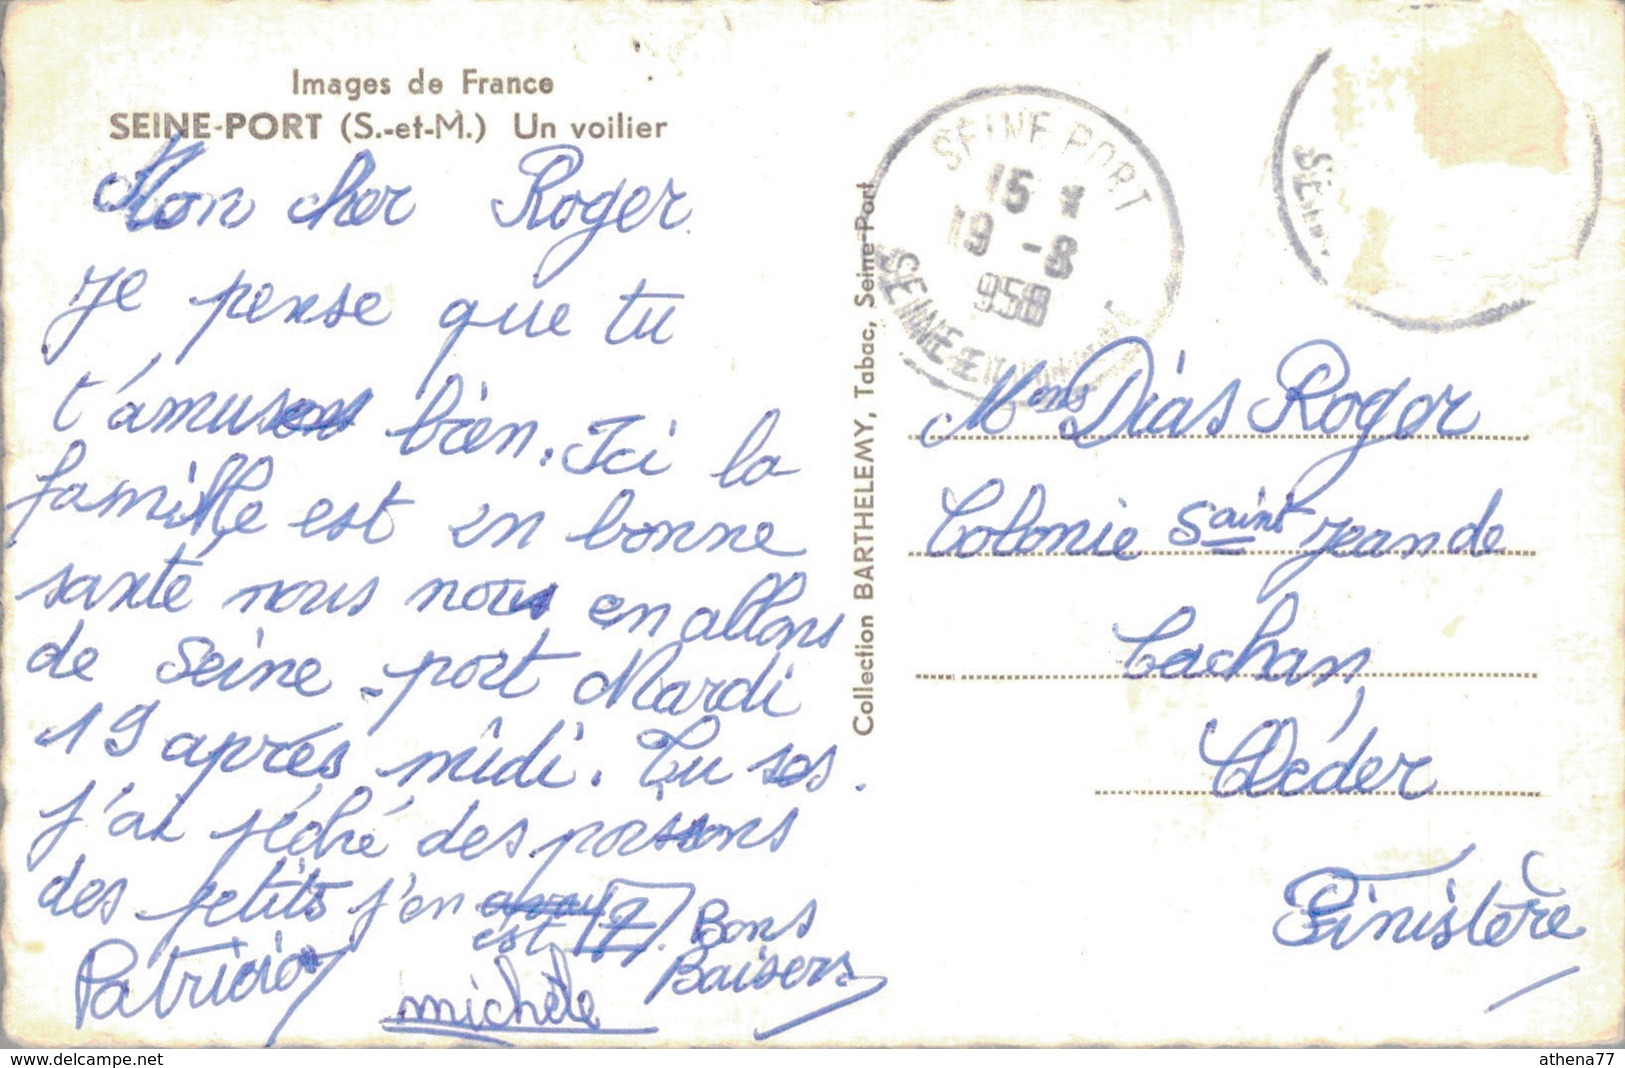 Images de France
SEINE-PORT (S.-et-M.) Un voilier
Mon cher Roger
je pense que tu
t'amuses bien. Ici la
famille est en bonne
santé nous nous en allons
de Seine-port Mardi
19 après midi. Tu sos.
j'ai pêché des poissons
des petits j'en
est 17. Bons
Baisers
Patricia
michèle
Collection BARTHELEMY, Tabac, Seine-Port
SEINE PORT
15 *
19 -8
958
SEINE ET
SEIN
Dias Roger
Colonie Saint jean de
Cachan,
Cléder
Finistère
athena77
www.delcampe.net